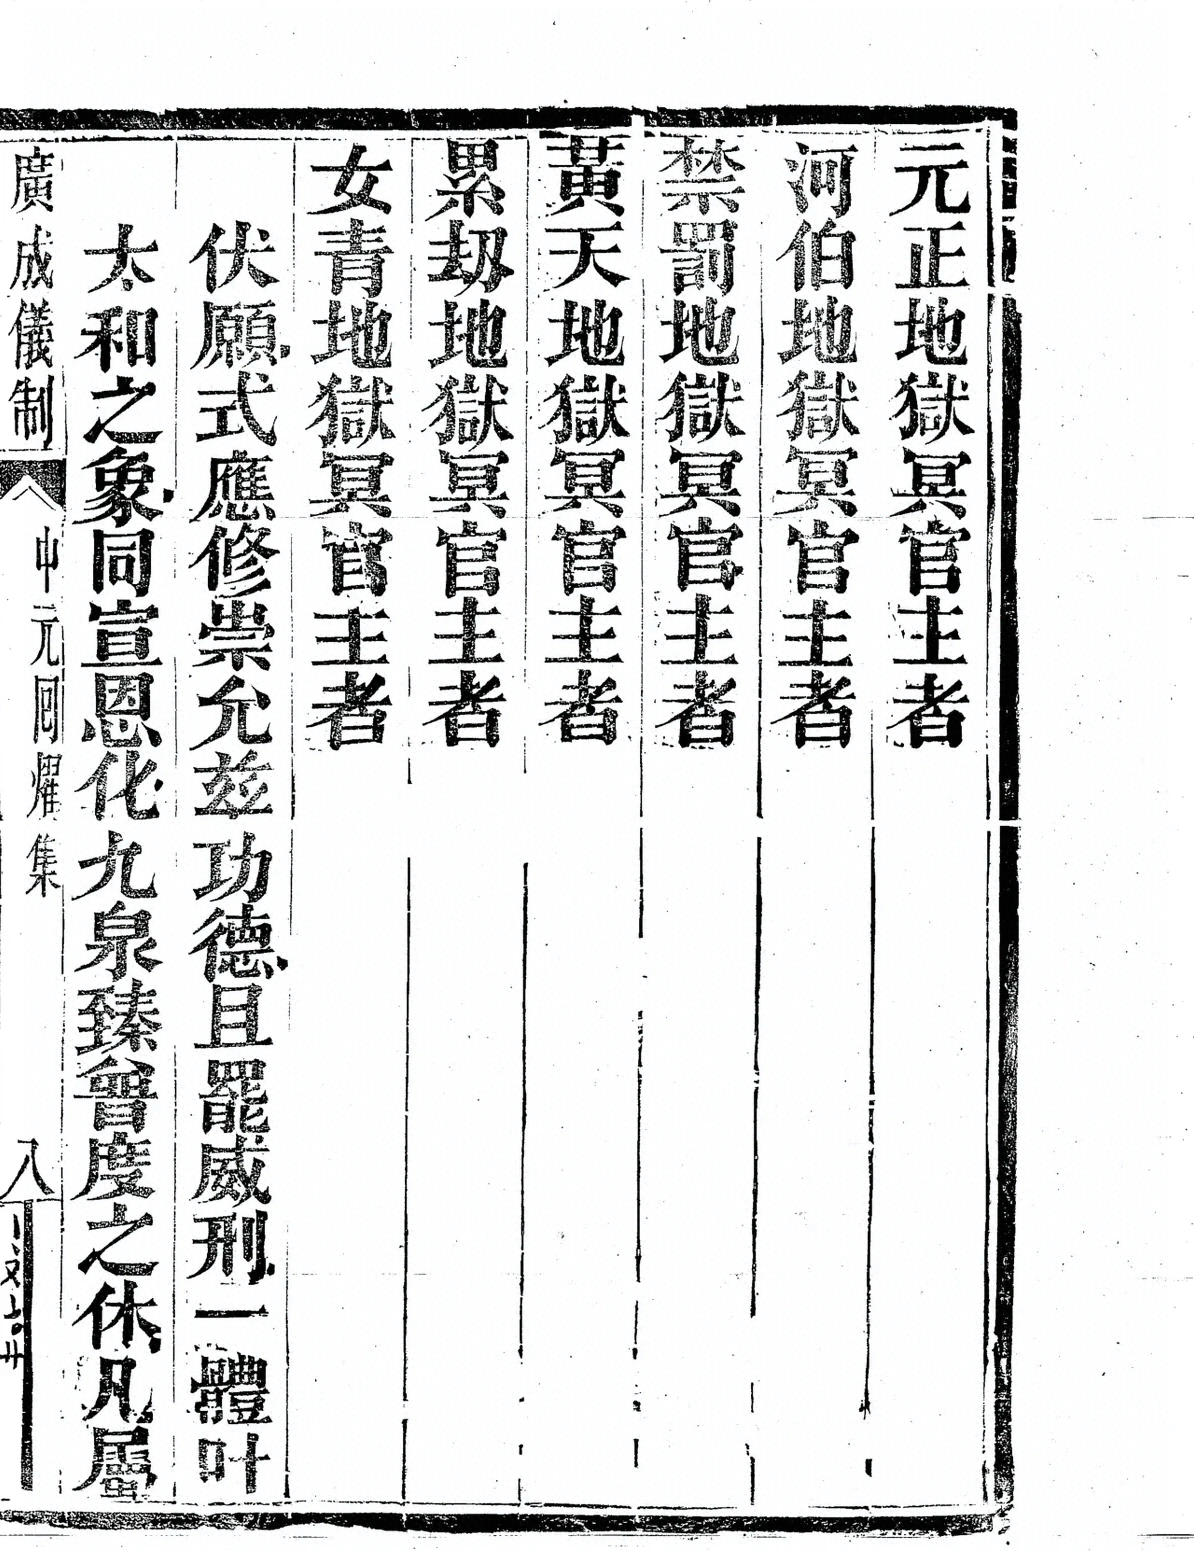 元正地獄冥官主者
河伯地獄冥官主者
禁罰地獄冥官主者
黃天地獄冥官主者
累刼地獄冥官主者
女青地獄冥官主者
伏願式應修崇允茲功德且罷威刑一體叶
太和之象同宣恩化九泉臻普度之休凡屬
廣成儀制
中元回耀集
八